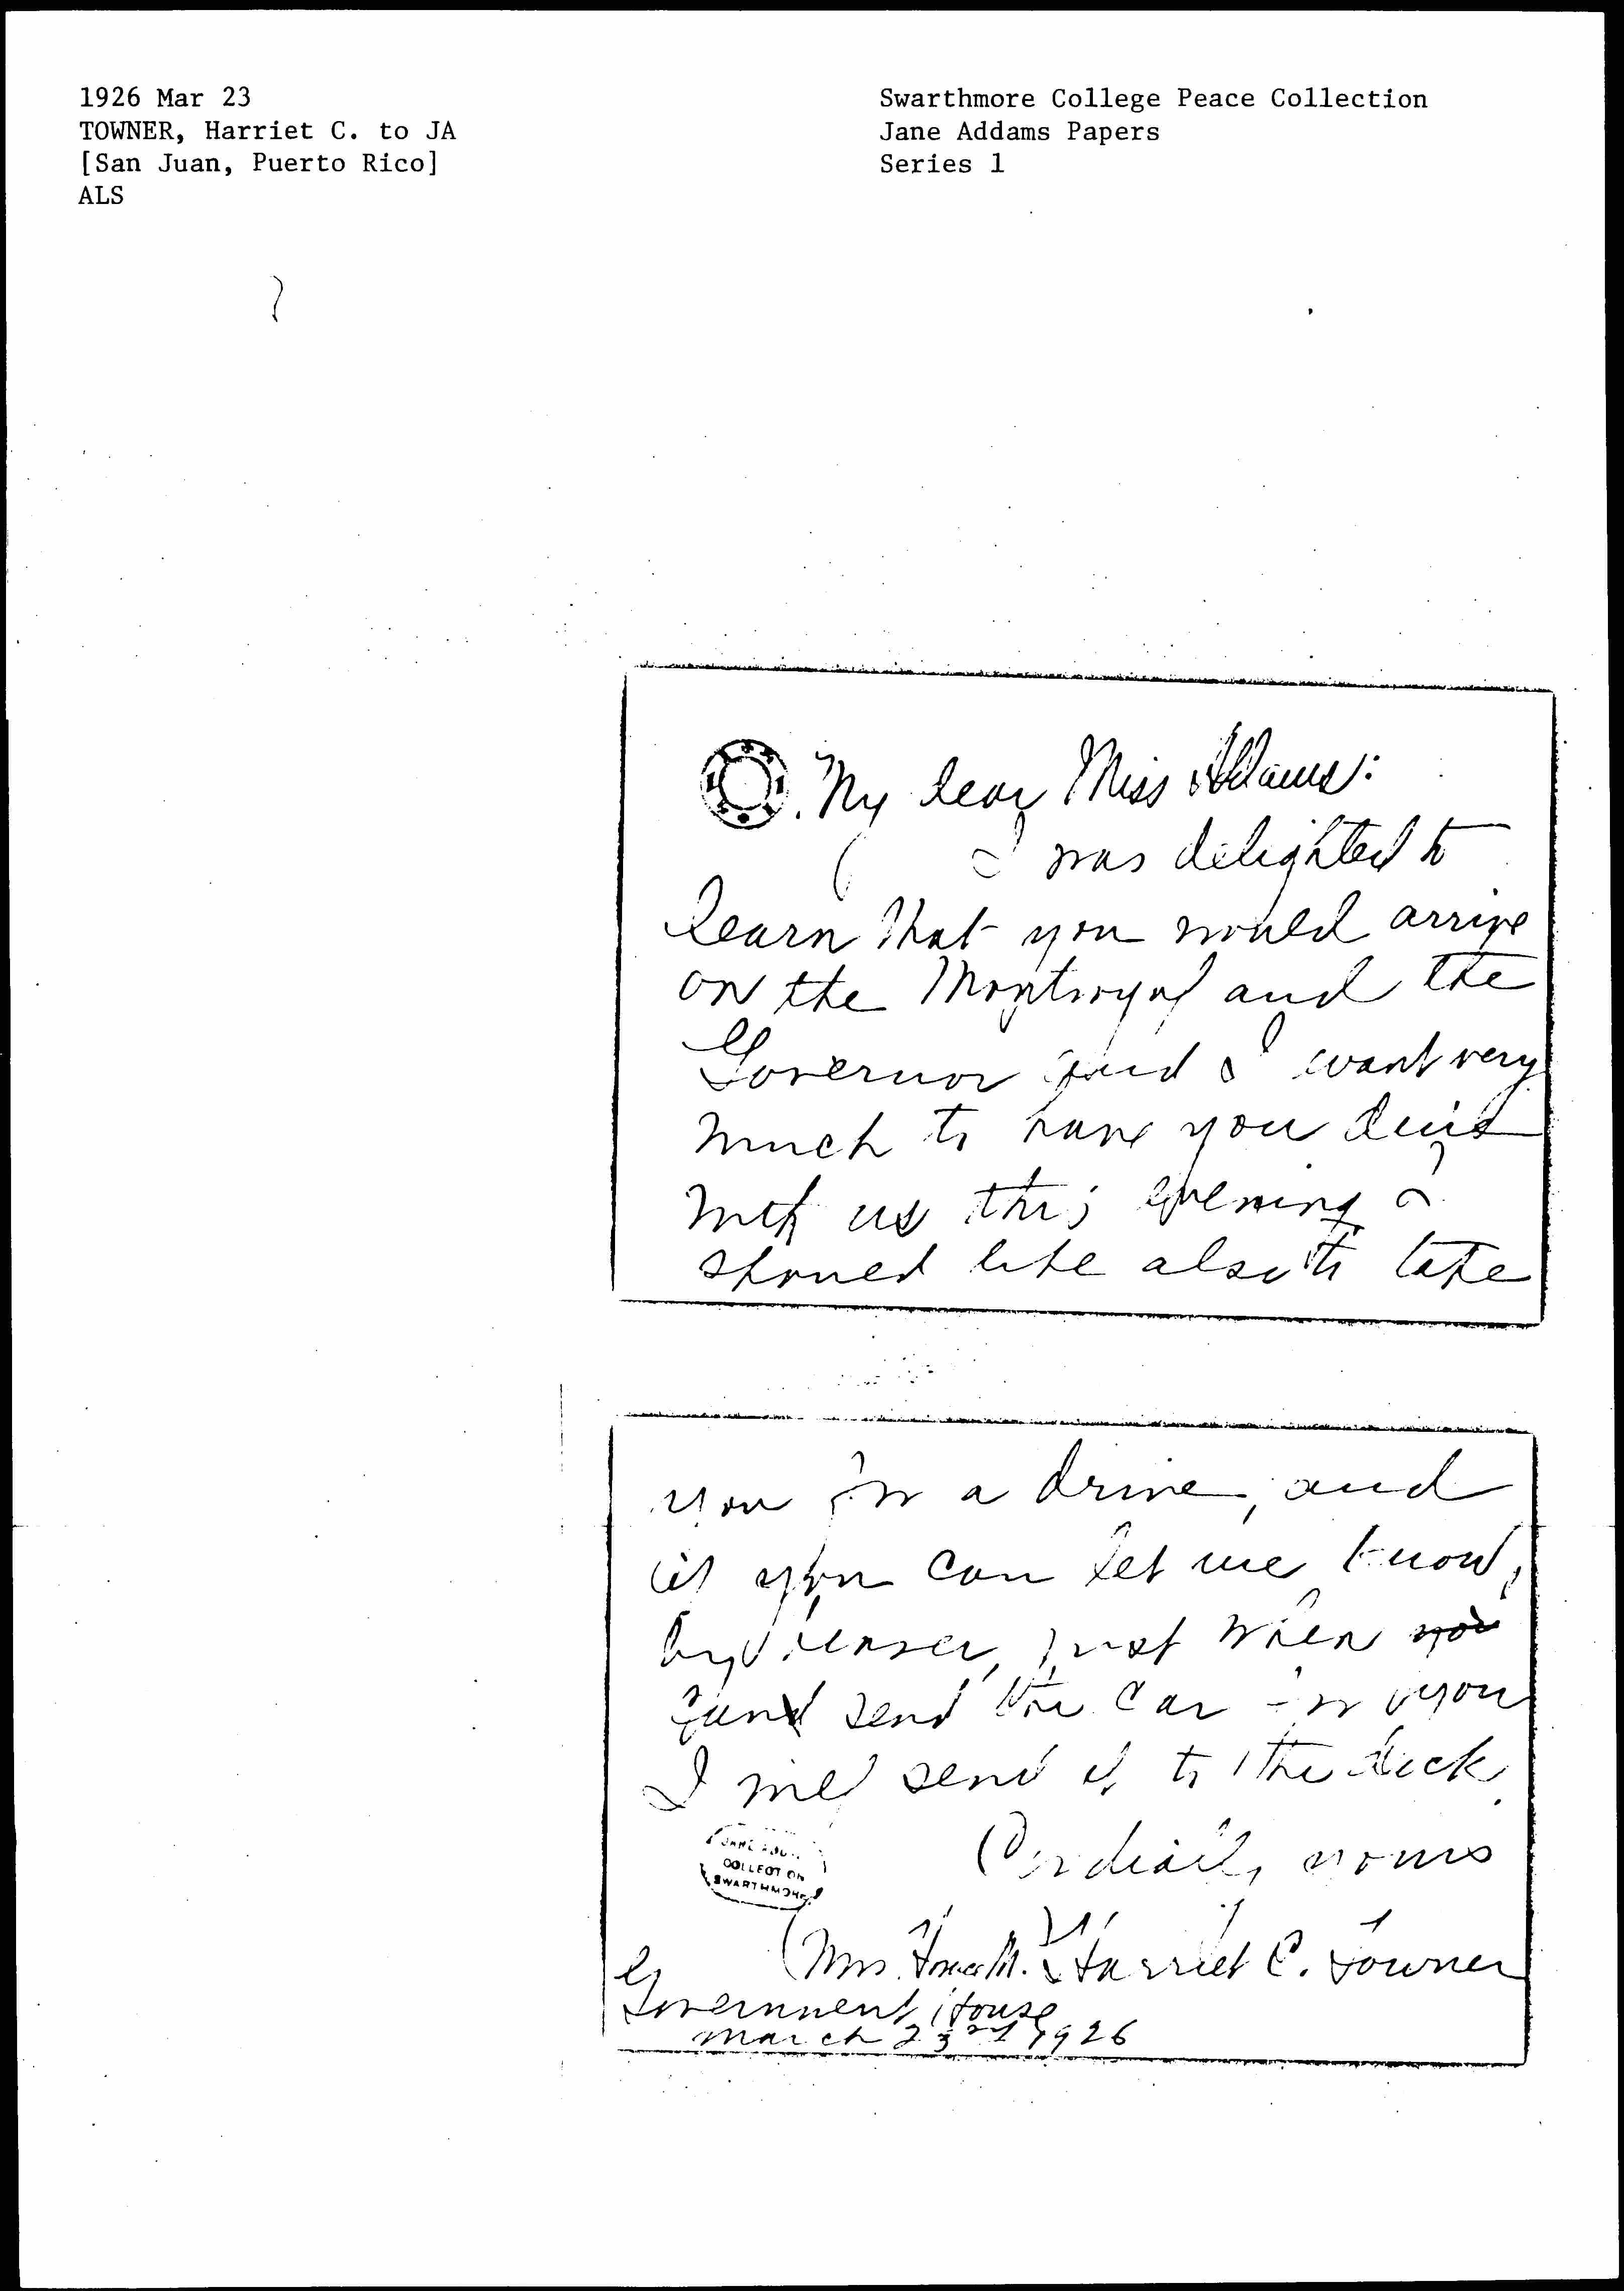 1926 Mar 23
TOWNER, Harriet C. to JA
[San Juan, Puerto Rico]
ALS
Swarthmore College Peace Collection
Jane Addams Papers
Series 1
My dear Miss Addams:
I was delighted to
learn that you would arrive
on the Montroyal and the
Governor and I want very
much to have you dine
with us this evening &
should like also to take
you for a drive, and
if you can let me know,
by bearer, just when you
send the car for you
I will send it to the dock.
Cordially yours
(Mrs. Horace M.) Harriet C. Towner
Government House
March 23rd 1926
COLLECTION
SWARTHMORE